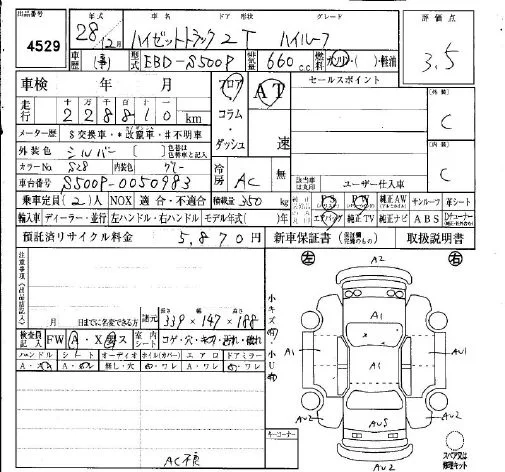 出品番号 年式 車名 ドア 形状 グレード 評価点
4529 28年12月 ハイゼットトラック 2T ハイルーフ 3.5
車歴 型式 EBD-S500P 排気量 660cc 燃料 ガソリン・( )・軽油
車検 年 月 フロア AT セールスポイント
走行 十万 万 千 百 十 一
2 2 8 8 1 0 km コラム
メーター歴 $ 交換車・*改竄車・#不明車 ダッシュ 速
外装色 シルバー 色替は色替車と記入
カラーNo S28 内装色 グレー 冷房 AC 無
車台番号 S500P-0050983 ユーザー仕入車
外装 C
内装 C
乗車定員(2)人 NOX 適合・不適合 積載量 350 kg PS PW 純正AW サンルーフ 革シート
輸入車 ディーラー・並行 左ハンドル・右ハンドル モデル年式( )年 エアバック 純正TV 純正ナビ ABS
預託済リサイクル料金 5,870円 新車保証書 取扱説明書
注意事項
月 日までに名変できる方 諸元 長さ 339 × 幅 147 × 高さ 188
検査員記入 FW A・X ス 室内シート コゲ・穴・キズ・汚れ・破れ
ハンドル シート オーディオ ホイル(カバー) エアロ ドアミラー
無し・穴
AC不良
キーコーナー
小キズ 小U
左 A2 右
A1
A1 A1 AU1
AU2 AU5 AU2
AU2
スペア又は修理キット